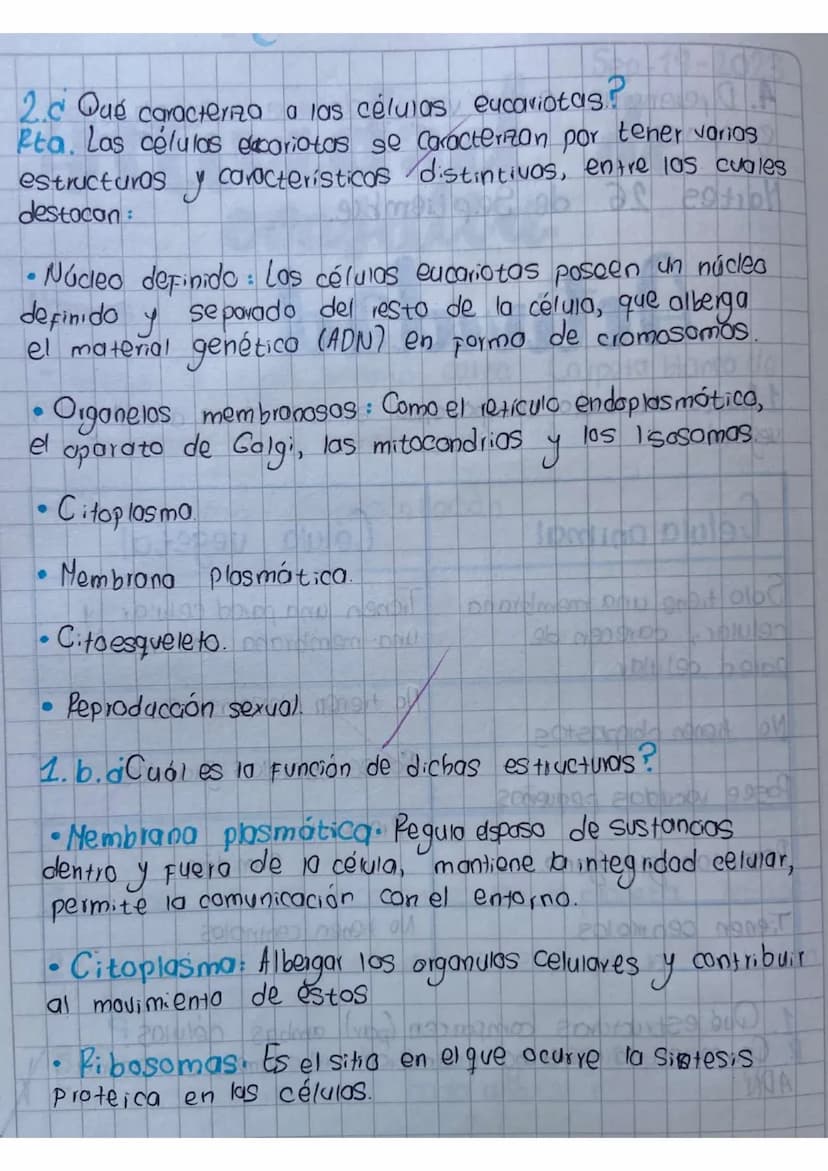 2. ¿ Qué caracteriza a las células eucariotas?
Rta. Las células eucariotas se caracterizan por tener varias
estructuras y características distintivas, entre las cuales
destacan:
• Núcleo definido: Las células eucariotas poseen un núcleo
definido y separado del resto de la célula, que alberga
el material genético (ADN) en forma de cromosomas.
• Organelos membranosos: Como el retículo endoplasmático,
el aparato de Golgi, las mitocondrias y los lisosomas.
• Citoplasma.
• Membrana plasmática.
• Citoesqueleto.
• Reproducción sexual.
1. b. ¿Cuál es la función de dichas estructuras?
• Membrana plasmática. Regula el paso de sustancias
dentro y fuera de la célula, mantiene la integridad celular,
permite la comunicación con el entorno.
• Citoplasma: Albergar los organulos celulares y contribuir
al movimiento de éstos
• Ribosomas. Es el sitio en el que ocurre la síntesis
proteica en las células.